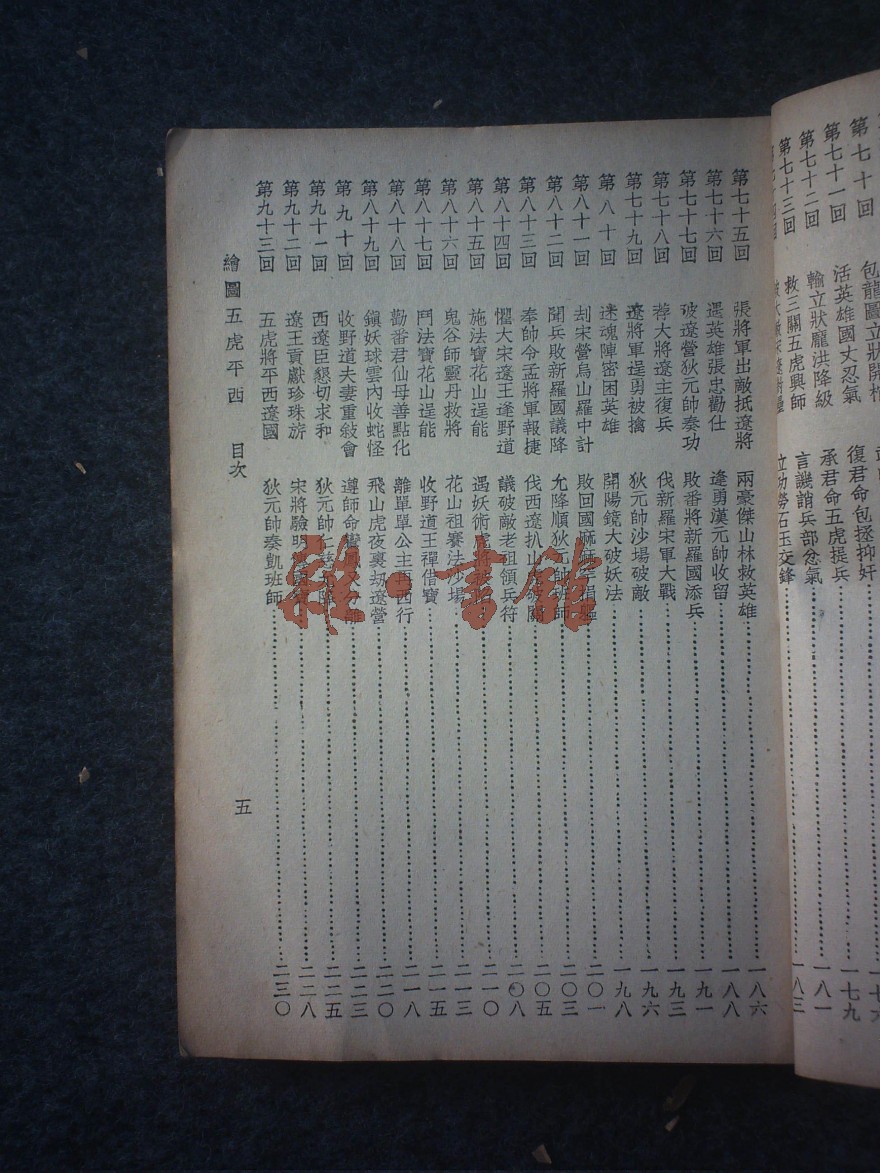 第七十回
活英雄國丈忍氣 復君命包拯抑奸 一七九
第七十一回 輸立狀龐洪降級 承君命五虎提兵 一八一
第七十三回 救三關五虎興師 言譏誚兵部忿氣 一八三
立功勞石玉交鋒
第七十五回 張將軍出敵抵遼將 兩豪傑山林救英雄 一八六
第七十六回 遇英雄張忠勸仕 逢勇漢元帥收留 一八八
第七十七回 破遼營狄元帥奏功 敗番將新羅國添兵 一九一
第七十八回 蓉大將遼主復兵 伐新羅宋軍大戰 一九三
第七十九回 遼將軍逞勇被擒 狄元帥沙場破敵 一九六
第八十回 迷魂陣密困英雄 開陽鏡大破妖法 一九八
第八十一回 刦宋營烏山羅中計 敗回國麻麻 二〇一
第八十二回 聞兵敗新羅國議降 允降順狄元帥班師 二〇三
第八十三回 奉帥令孟將軍報捷 伐西遼扒山 關 二〇五
第八十四回 懼大宋遼王逢野道 議破敵老祖領兵符 二〇八
第八十五回 施法寶花山逞能 遇妖術虎將 二一〇
第八十六回 鬼谷師靈丹救將 花山祖賽法沙場 二一三
第八十七回 鬥法寶花山逞能 收野道王禪借寶 二一五
第八十八回 勸番君仙母善點化 離單單公主 西行 二一八
第八十九回 鎭妖球雲內收蛇怪 飛山虎夜裏刼遼營 二二〇
第九十回 收野道夫妻重敍會 遵師命 二二三
第九十一回 西遼臣懇切求和 狄元帥仁 二二五
第九十二回 遼王貢獻珍珠旂 宋將驗明 二二八
第九十三回 五虎將平西遼國 狄元帥奏凱班師 二三〇
繪圖五虎平西 目次 五